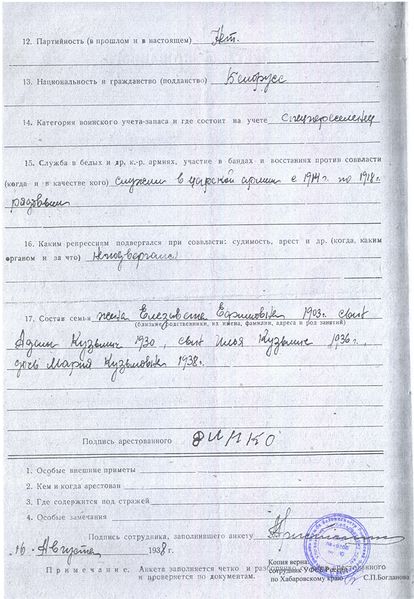 12. Партийность (в прошлом и в настоящем) Нет.
13. Национальность и гражданство (подданство) Белорусс
14. Категория воинского учета-запаса и где состоит на учете Спецпереселенец
15. Служба в белых и др. к.-р. армиях, участие в бандах и восстаниях против соввласти
(когда и в качестве кого) служил в царской армии с 1914 по 1918 г.
рядовым
16. Каким репрессиям подвергался при соввласти: судимость, арест и др. (когда, каким
органом и за что) неподвергался
17. Состав семьи жена Елезавета Ефимовна 1903. сын
(близкие родственники, их имена, фамилии, адреса и род занятий)
Адам Кузьмич 1930, сын Илья Кузьмич 1936г.,
дочь Мария Кузьмовна 1938г.
Подпись арестованного ДИЧКО
1. Особые внешние приметы
2. Кем и когда арестован
3. Где содержится под стражей
4. Особые замечания
Подпись сотрудника, заполнившего анкету
"16" Августа 1938 г.
Копия верна:
Примечание. Анкета заполняется четко и арестованного
сотрудник УФСБ России
и проверяется по документам.
по Хабаровскому краю С.П.Богданова